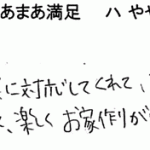 あまあ満足 ハ やや
に対応してくれて、
、楽しく お家作りが